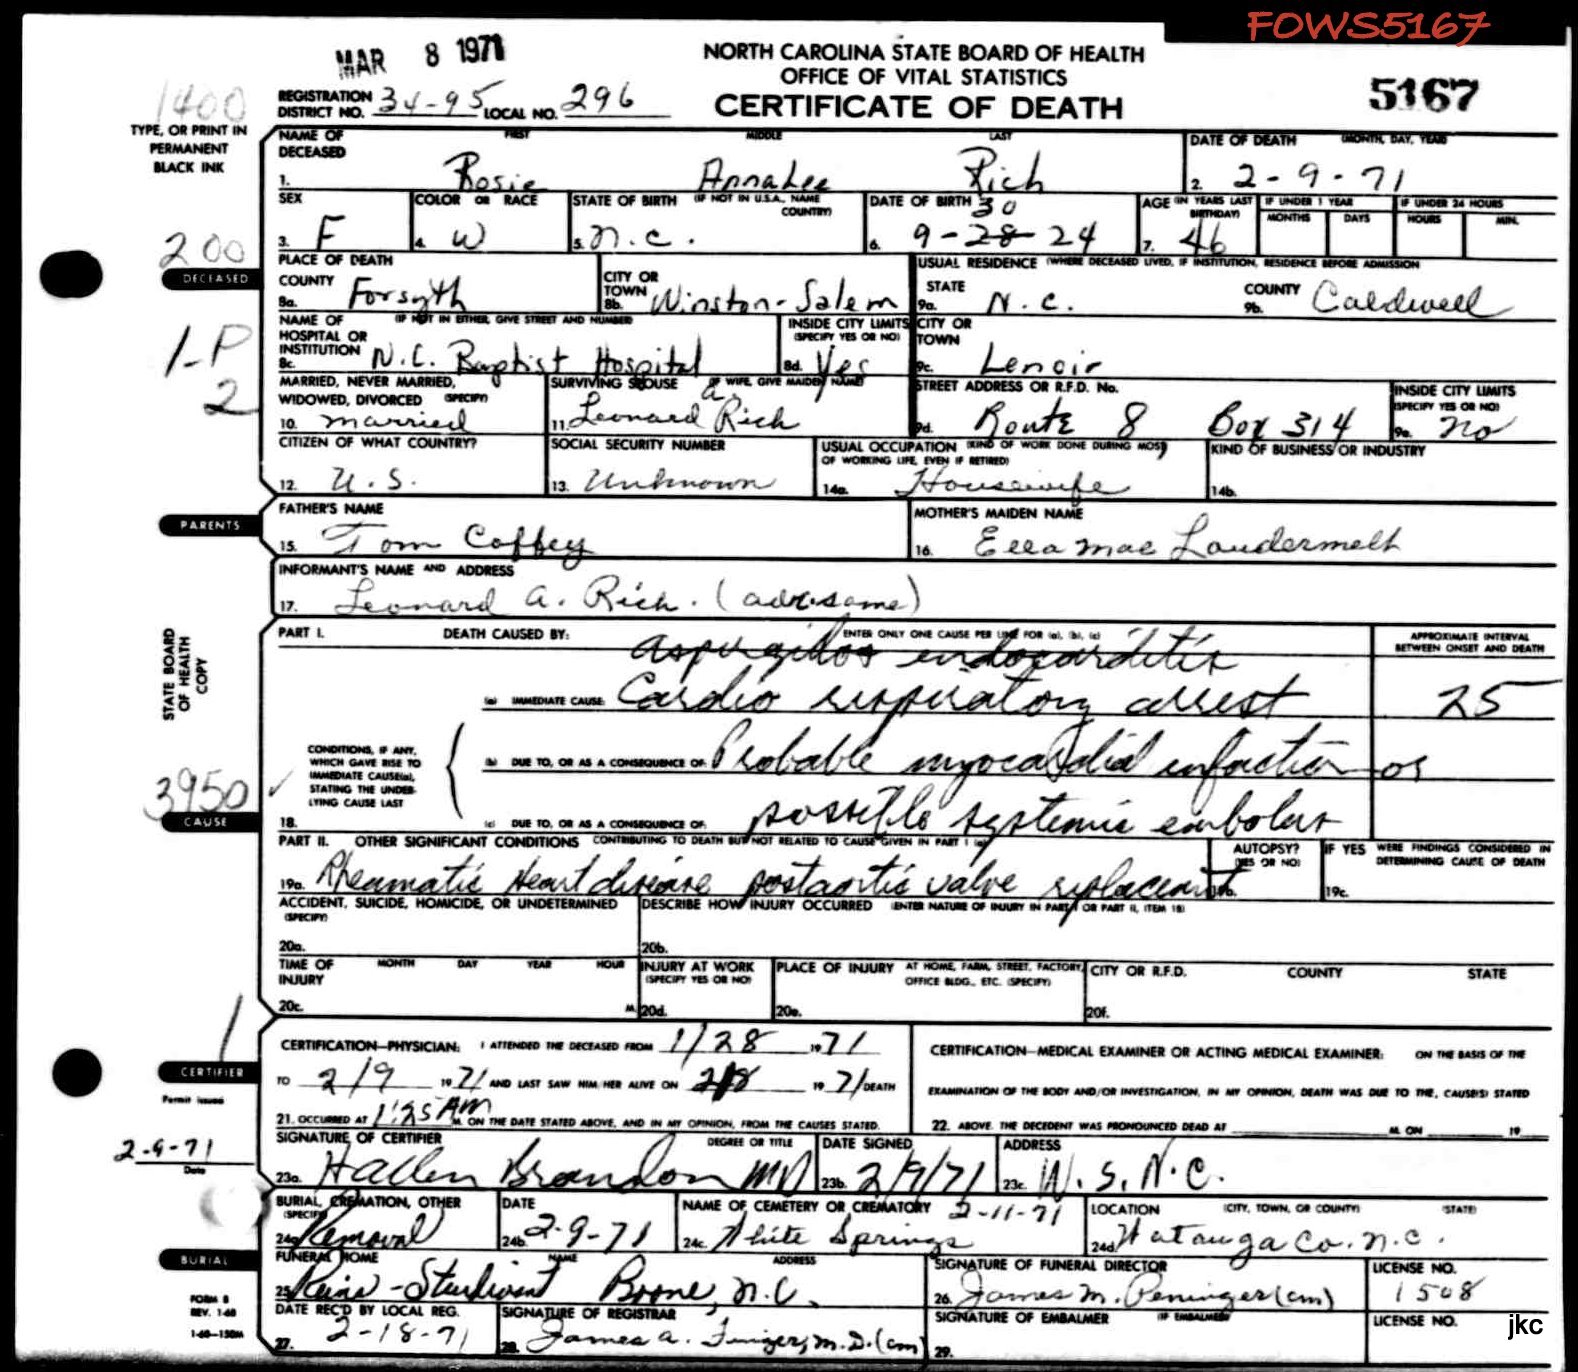 FOWS5167
MAR 8 1971
NORTH CAROLINA STATE BOARD OF HEALTH
OFFICE OF VITAL STATISTICS
CERTIFICATE OF DEATH
5167
1400
REGISTRATION DISTRICT NO. 34-95 LOCAL NO. 296
TYPE, OR PRINT IN PERMANENT BLACK INK
NAME OF DECEASED FIRST MIDDLE LAST
1. Rosie AnnaLee Rich
DATE OF DEATH (MONTH, DAY, YEAR)
2. 2-9-71
SEX
3. F
COLOR OR RACE
4. W
STATE OF BIRTH (IF NOT IN U.S.A., NAME COUNTRY)
5. N.C.
DATE OF BIRTH 30
6. 9-28-24
AGE (IN YEARS LAST BIRTHDAY)
7. 46
IF UNDER 1 YEAR MONTHS DAYS
IF UNDER 24 HOURS HOURS MIN.
200
DECEASED
PLACE OF DEATH
COUNTY
8a. Forsyth
CITY OR TOWN
8b. Winston-Salem
USUAL RESIDENCE (WHERE DECEASED LIVED, IF INSTITUTION, RESIDENCE BEFORE ADMISSION
STATE
9a. N.C.
COUNTY
9b. Caldwell
NAME OF HOSPITAL OR INSTITUTION (IF NOT IN EITHER, GIVE STREET AND NUMBER)
8c. N.C. Baptist Hospital
INSIDE CITY LIMITS (SPECIFY YES OR NO)
8d. Yes
CITY OR TOWN
9c. Lenoir
1-P
2
MARRIED, NEVER MARRIED, WIDOWED, DIVORCED (SPECIFY)
10. married
SURVIVING SPOUSE (IF WIFE, GIVE MAIDEN NAME)
11. Leonard a. Rich
STREET ADDRESS OR R.F.D. No.
9d. Route 8 Box 314
INSIDE CITY LIMITS (SPECIFY YES OR NO)
9e. no
CITIZEN OF WHAT COUNTRY?
12. U.S.
SOCIAL SECURITY NUMBER
13. Unknown
USUAL OCCUPATION (KIND OF WORK DONE DURING MOST OF WORKING LIFE, EVEN IF RETIRED)
14a. Housewife
KIND OF BUSINESS OR INDUSTRY
14b.
PARENTS
FATHER'S NAME
15. Tom Coffey
MOTHER'S MAIDEN NAME
16. Ella Mae Loudermelt
INFORMANT'S NAME AND ADDRESS
17. Leonard A. Rich. (adr. same)
STATE BOARD OF HEALTH COPY
PART I. DEATH CAUSED BY: ENTER ONLY ONE CAUSE PER LINE FOR (a), (b), (c)
APPROXIMATE INTERVAL BETWEEN ONSET AND DEATH
endocarditis
(a) IMMEDIATE CAUSE: Cardio respiratory arrest 25
CONDITIONS, IF ANY, WHICH GAVE RISE TO IMMEDIATE CAUSE(a), STATING THE UNDERLYING CAUSE LAST
(b) DUE TO, OR AS A CONSEQUENCE OF: Probable myocardial infarction or
3950
CAUSE
18. (c) DUE TO, OR AS A CONSEQUENCE OF: possible systemic embolus
PART II. OTHER SIGNIFICANT CONDITIONS CONTRIBUTING TO DEATH BUT NOT RELATED TO CAUSE GIVEN IN PART I (a)
19a. Rheumatic Heart disease postaortic valve replacement
AUTOPSY? (YES OR NO)
19b.
IF YES WERE FINDINGS CONSIDERED IN DETERMINING CAUSE OF DEATH
19c.
ACCIDENT, SUICIDE, HOMICIDE, OR UNDETERMINED (SPECIFY)
20a.
DESCRIBE HOW INJURY OCCURRED (ENTER NATURE OF INJURY IN PART I OR PART II, ITEM 18)
20b.
TIME OF INJURY MONTH DAY YEAR HOUR
20c. M.
INJURY AT WORK (SPECIFY YES OR NO)
20d.
PLACE OF INJURY AT HOME, FARM, STREET, FACTORY, OFFICE BLDG., ETC. (SPECIFY)
20e.
CITY OR R.F.D. COUNTY STATE
20f.
1
CERTIFIER
CERTIFICATION—PHYSICIAN: I ATTENDED THE DECEASED FROM 1/28 1971
TO 2/9 1971 AND LAST SAW HIM/HER ALIVE ON 2/8 1971 DEATH
21. OCCURRED AT 1:25 AM M. ON THE DATE STATED ABOVE, AND IN MY OPINION, FROM THE CAUSES STATED.
CERTIFICATION—MEDICAL EXAMINER OR ACTING MEDICAL EXAMINER: ON THE BASIS OF THE
EXAMINATION OF THE BODY AND/OR INVESTIGATION, IN MY OPINION, DEATH WAS DUE TO THE, CAUSE(S) STATED
22. ABOVE. THE DECEDENT WAS PRONOUNCED DEAD AT M. ON 19
Permit issued
2-9-71
Date
SIGNATURE OF CERTIFIER DEGREE OR TITLE
23a. Hallen Brandon MD
DATE SIGNED
23b. 2/9/71
ADDRESS
23c. W.S. N.C.
BURIAL, CREMATION, OTHER (SPECIFY)
24a. Removal
DATE
24b. 2-9-71
NAME OF CEMETERY OR CREMATORY 2-11-71
24c. White Springs
LOCATION (CITY, TOWN, OR COUNTY) (STATE)
24d. Watauga Co. N.C.
BURIAL
FUNERAL HOME NAME ADDRESS
25. Reins-Sturdivant Boone, N.C.
SIGNATURE OF FUNERAL DIRECTOR
26. James M. Peninger (cm)
LICENSE NO.
1508
FORM 8
REV. 1-68
1-68—150M
DATE REC'D BY LOCAL REG.
27. 2-18-71
SIGNATURE OF REGISTRAR
28. James A. Finger, M.D. (cm)
SIGNATURE OF EMBALMER (IF EMBALMED)
29.
LICENSE NO.
jkc